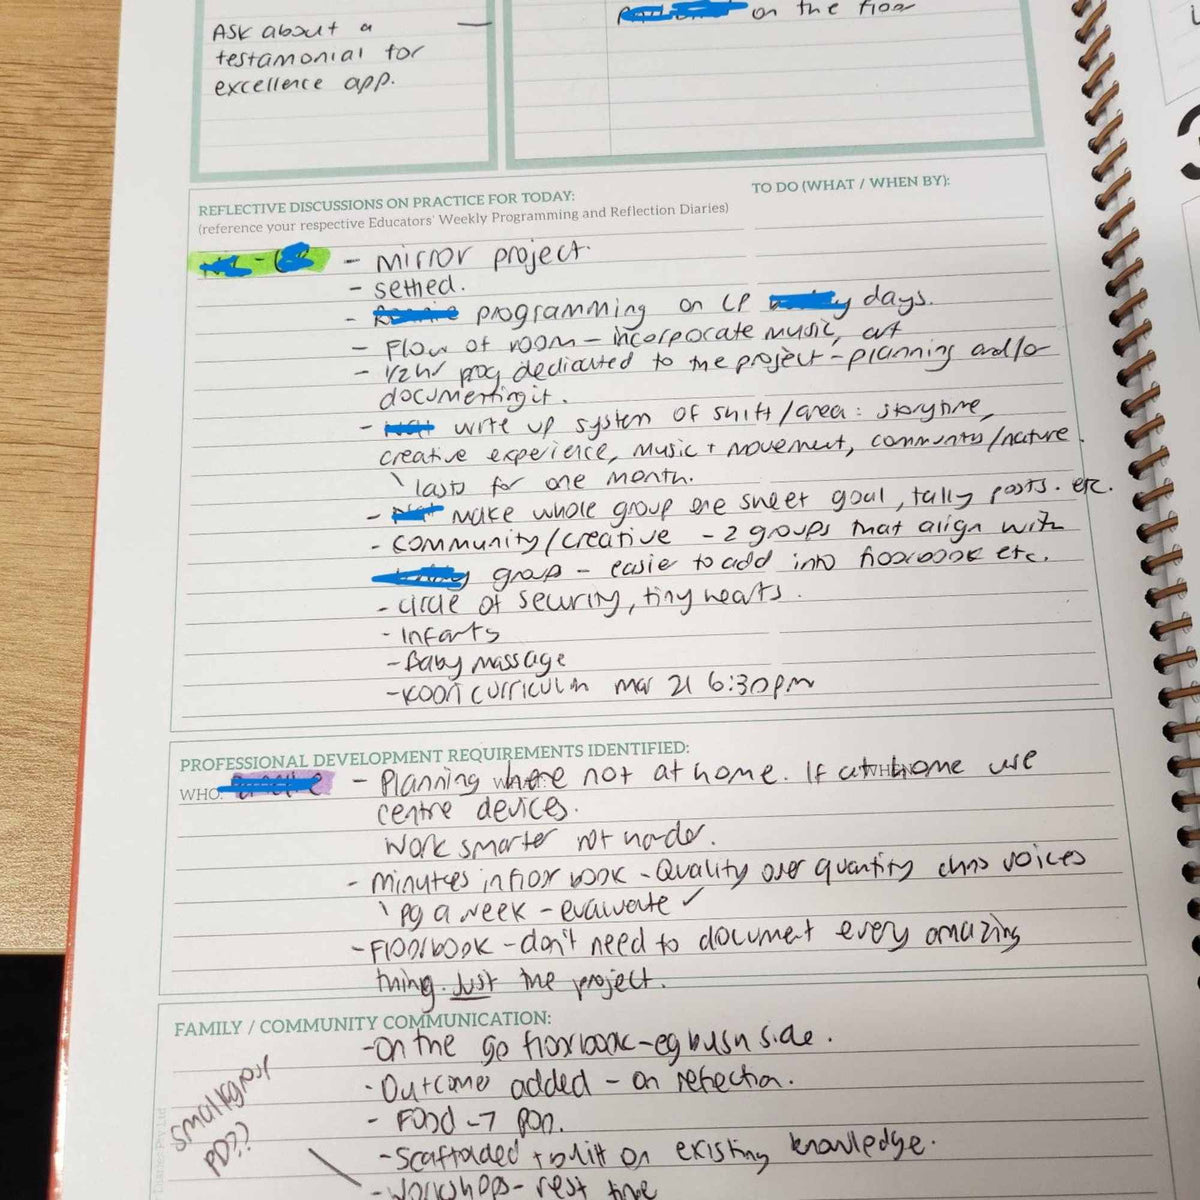 ASK about a
testamonial for
excellence app.
on the floor
REFLECTIVE DISCUSSIONS ON PRACTICE FOR TODAY:
(reference your respective Educators' Weekly Programming and Reflection Diaries)
TO DO (WHAT / WHEN BY):
- Mirror project.
- settled.
- programming on LP days.
- Flow of room - incorporate music, art
- 1/2 hr prog dedicated to the project - planning and/or
documenting it.
- write up system of shift/area: storytime,
creative experience, music + movement, community/nature.
lasts for one month.
- make whole group one sheet goal, tally posts. etc.
- community/creative - 2 groups that align with
group - easier to add into floorbook etc.
- circle of security, tiny hearts.
- Infants
- Baby massage
- Koori curriculum mar 21 6:30pm
PROFESSIONAL DEVELOPMENT REQUIREMENTS IDENTIFIED:
WHO:
- Planning where not at home. If at home use
centre devices.
Work smarter not harder.
- Minutes in floor book - Quality over quantity chns voices
pg a week - evaluate ✓
- Floorbook - don't need to document every amazing
thing. Just the project.
FAMILY / COMMUNITY COMMUNICATION:
- On the go floorbook - eg bush side.
- Outcomes added - on reflection.
- Food - 7
- Scaffolded + built on existing knowledge.
- Workshops - rest time
small group
PD??
Diaries Pty Ltd